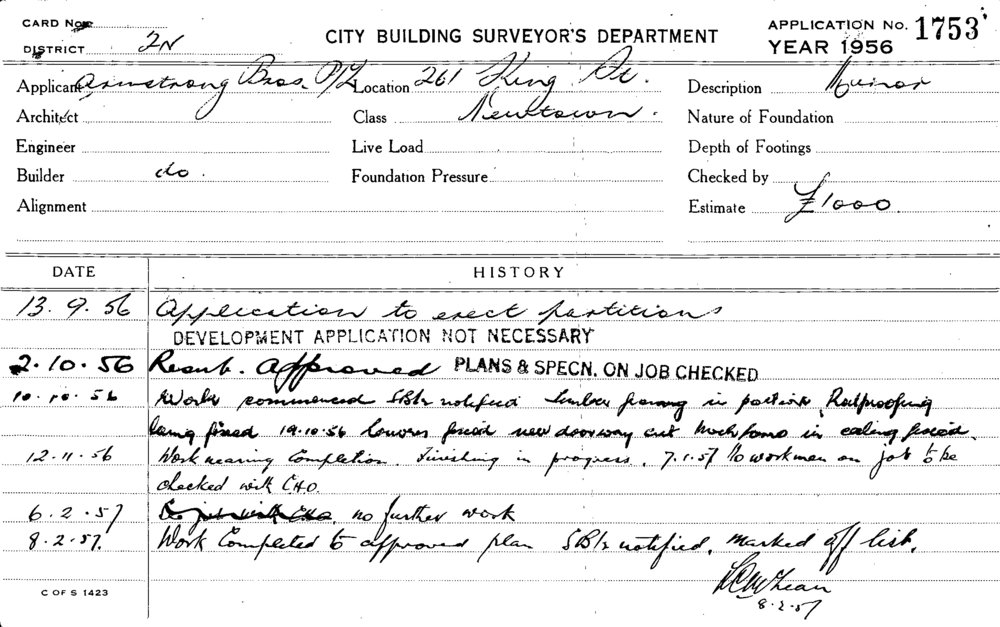 CARD No.
DISTRICT 2N
CITY BUILDING SURVEYOR'S DEPARTMENT
APPLICATION No. 1753
YEAR 1956
Applicant Armstrong Bros. P/L Location 261 King St. Description Minor
Architect Class Newtown. Nature of Foundation
Engineer Live Load Depth of Footings
Builder do. Foundation Pressure Checked by
Alignment Estimate £1000.
DATE HISTORY
13.9.56 Application to erect partitions
DEVELOPMENT APPLICATION NOT NECESSARY
2.10.56 Resub. Approved PLANS & SPECN. ON JOB CHECKED
10.10.56 Work commenced notified timber framing in Ratproofing
being fixed 19.10.56 Louvres fixed new doorway cut in ceiling fixed.
12.11.56 Work nearing Completion. Finishing in progress. 7.1.57 No workmen on job to be
checked with C.H.O.
6.2.57 no further work
8.2.57. Work Completed to approved plan notified. marked off list.
8.2.57
C OF S 1423